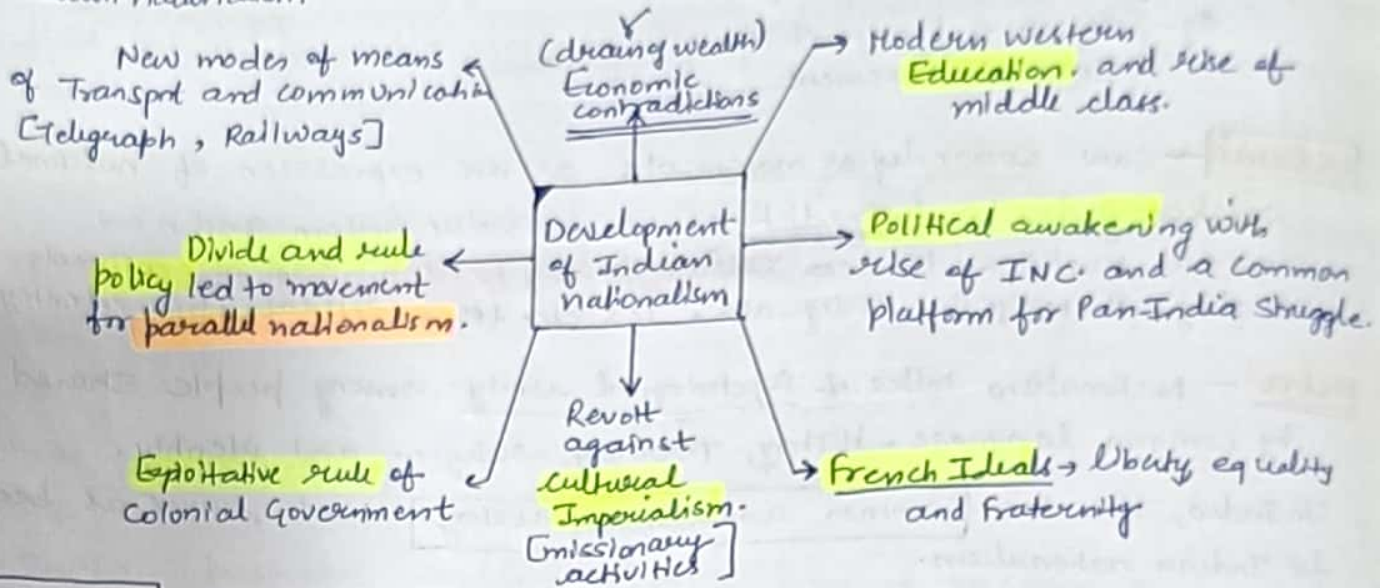 New modes of means
of Transprt and communicatin
[Telegraph, Railways]
(draing wealth)
Economic
contradictions
→ Modern western
Education. and rise of
middle class.
Divide and rule
policy led to movement
for parallel nationalism.
Development
of Indian
nationalism
Political awakening with
rise of INC. and a common
platform for Pan-India Struggle.
Exploitative rule of
Colonial Government
Revolt
against
cultural
Imperialism.
[missionary
activities]
French Ideals → liberty equality
and fraternity.